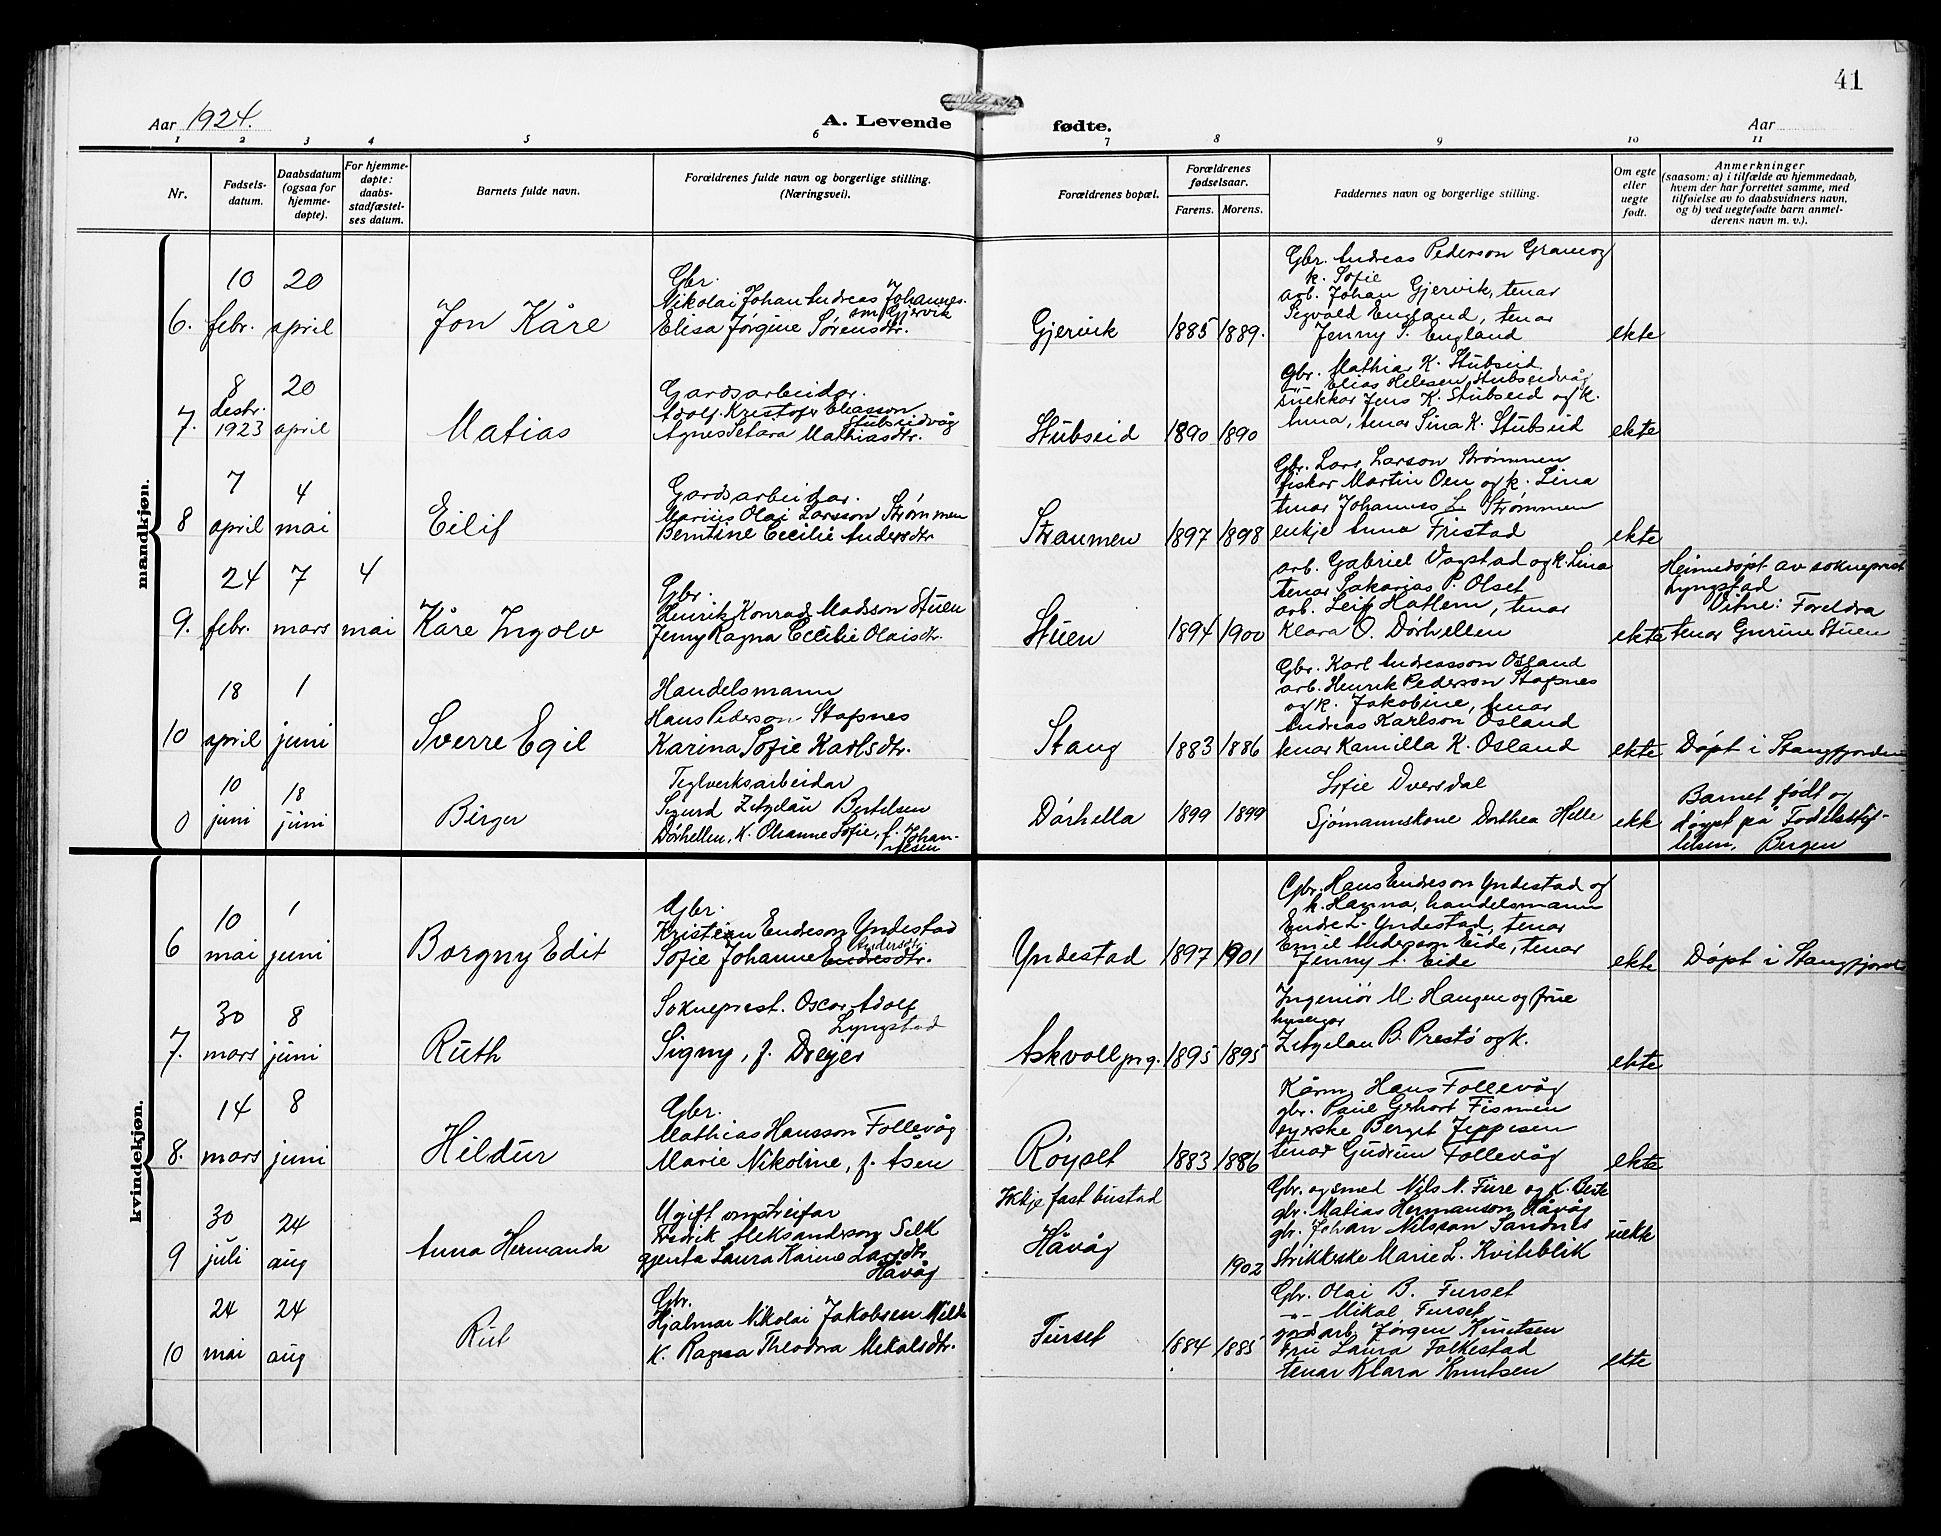 41
Aar 1924.
A. Levende fødte.
Aar
1 2 3 4 5 6 7 8 9 10 11
Nr.
Fødsels-
datum.
Daabsdatum
(ogsaa for
hjemme-
døpte).
For hjemme-
døpte:
daabs-
stadfæstel-
ses datum.
Barnets fulde navn.
Forældrenes fulde navn og borgerlige stilling.
(Næringsvei).
Forældrenes bopæl.
Forældrenes
fødselsaar.
Farens. Morens.
Faddernes navn og borgerlige stilling.
Om egte
eller
uegte
født.
Anmerkninger
(saasom: a) i tilfælde av hjemmedaab,
hvem der har forrettet samme, med
tilføielse av to daabsvidners navn,
og b) ved uegtefødte barn anmel-
derens navn m. v.).
mandkjøn.
6. 10 febr. 20 april
Jon Kåre
Gbr.
Nikolai Johan Andreas Johannes-
son Gjervik
Elisa Jørgine Sørensdtr.
Gjervik 1885 1889.
Gbr. Andreas Pederson Gram og
k. Sofie
arb. Johan Gjervik, tenar
Sigvald England, tenar
Jenny S. England
ekte
7. 8 desbr. 1923 20 april
Matias
Gardsarbeidar.
Adolf Kristofer Eliasson
Stubseidvåg
Agnes Petara Mathiasdtr.
Stubseid 1890 1890
Gbr. Mathias K. Stubseid
Elias Helesen Stubseidvåg
snekkar Jens K. Stubseid og k.
Anna, tenar Sina K. Stubseid
ekte
8 7 april 4 mai
Eilif
Gardsarbeidar.
Marius Olai Larsson Strømmen
Berntine Cecilie Andersdtr
Straumen 1897 1898
Gbr. Lars Larson Strømmen
fiskar Martin Oen og k. Lina
tenar Johannes L. Strømmen
enkje Anna Fristad
ekte
9. 24 febr. 7 mars 4 mai
Kåre Ingolv
Gbr.
Henrik Konrad Madsson Stuen
Jenny Ragna Cecilie Olaisdtr.
Stuen 1894 1900
arb. Gabriel Vagstad og k. Lina
tenar Sakarias P. Olset
arb. Leif Hatlem, tenar
Klara O. Dørhellen
ekte
Heimedøpt av sokneprest
Lyngstad
Vitne: Foreldra
tenar Gurine Stuen
10 18 april 1 juni
Sverre Egil
Handelsmann
Hans Pederson Stafsnes
Karina Sofie Karlsdtr.
Stang 1883 1886
Gbr. Karl Andreasson Osland
arb. Henrik Pederson Stafsnes
og k. Jakobine, tenar
Andreas Karlson Osland
tenar Kamilla K. Osland
ekte
Døpt i Stangfjorden
0 10 juni 18 juni
Birger
Teglverksarbeidar
Sigurd Zetzelau Bertelsen
Dørhellen, K. Olianne Sofie, f. Johan-
nesen
Dørhella 1899 1899
Sofie Dversdal
Sjømannskone Dorthea Hille
ekte
Barnet født og
døypt på Fødselsstif-
telsen, Bergen
kvindekjøn.
6 10 mai 1 juni
Borgny Edit
Gbr.
Kristian Endreson Yndestad
Andersdtr.
Sofie Johanne Endresdtr.
Yndestad 1897 1901
Gbr. Hans Endreson Yndestad og
k. Hanna, handelsmann
Endre L. Yndestad, tenar
Emil Anderson Eide, tenar
Jenny A. Eide
ekte
Døpt i Stangfjorden
7. 30 mars 8 juni
Ruth
Sokneprest. Oscar Adolf
Lyngstad
Signy, f. Dreyer
Askvoll prg. 1895 1895
Ingeniør M. Haugen og frue
huseigar
Zetzelau B. Prestø og k.
ekte
8. 14 mars 8 juni
Hildur
Gbr.
Mathias Hansson Follevåg
Marie Nikoline, f. Åsen
Røyset 1883 1886
Kårm. Hans Follevåg
gbr. Paul Gerhart Fismen
syerske Berget Jeppesen
tenar Gudrun Follevåg
ekte
9 30 juli 24 aug
Anna Hermanda
Ugift omstreifar
Fredrik Aleksanderson Silk
gjenta Laura Karine Larsdtr
Håvåg
Ikkje fast bustad
Håvåg
1902
Gbr. og smed Nils N. Fure og K. Berte
gbr. Matias Hermanson Håvåg
gbr. Johan Nilsson Sandnes
Strikkerske Marie L. Kviteblik
uekte
10 24 mai 24 aug
Rut
Gbr.
Hjalmar Nikolai Jakobsen Milde
K. Ragna Theodora Mikalsdtr.
Furset 1884 1885
Gbr. Olai B. Furset
-"- Mikal Furset
gardsarb. Jørgen Knutsen
Fru Laura Folkestad
tenar Klara Knutsen
ekte